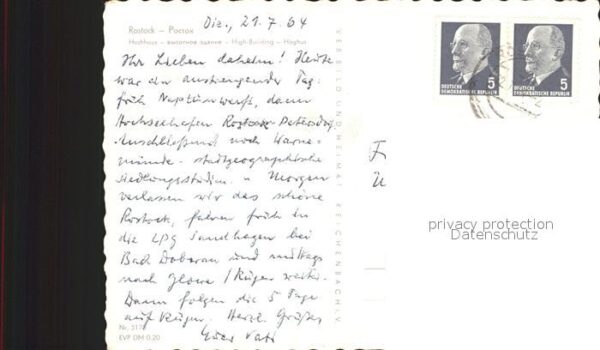 Die., 21.7.64
Rostock – Росток
Hochhaus – высотное здание – High-Building – Höghus
Ihr Lieben daheim! Heute
war ein anstrengender Tag:
früh Neptunwerft, dann
Hochseehafen Rostock-Petersdorf.
Anschließend noch Warne-
münde – stadtgeographische
Siedlungsstudien. Morgen
verlassen wir das schöne
Rostock, fahren früh in
die LPG Sandhagen bei
Bad Doberan und mittags
nach Glowe / Rügen weiter.
Dann folgen die 5 Tage
auf Rügen. Herzl. Grüße
Euer Vati
Nr. 517
EVP DM 0,20
VEB BILD UND HEIMAT REICHENBACH I. V.
5
DEUTSCHE
DEMOKRATISCHE REPUBLIK
5
DEUTSCHE
DEMOKRATISCHE REPUBLIK
F
U
privacy protection
Datenschutz